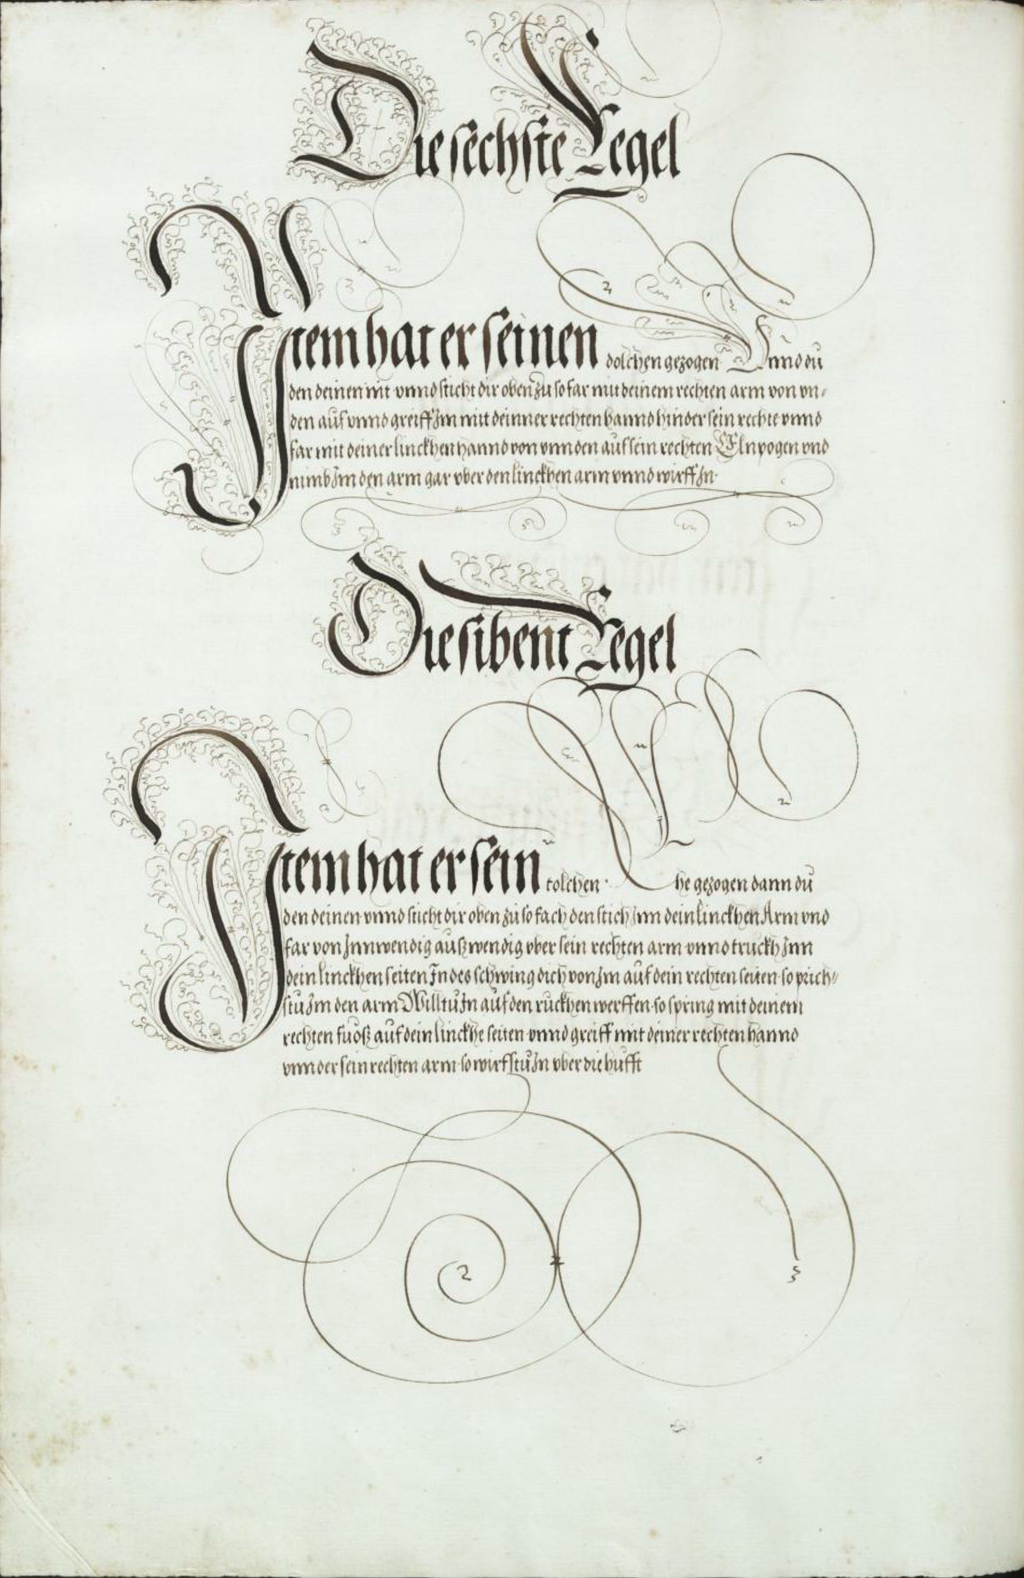 Die sechste Regel
Item hat er seinen dolchen gezogen Vnnd du
den deinen nit vnnd sticht dir oben zu so far mit deinem rechten arm von vn-
den auf vnnd greiff Im mit deinner rechten hannd hinder sein rechte vnnd
far mit deiner linckhen hannd von vnnden auf sein rechten Elnpogen vnd
nimb Im den arm gar vber den linckhen arm vnnd wirff In
Die sibent Regel
Item hat er sein tolchen he gezogen dann du
den deinen vnnd sticht dir oben zu so fach den stich Inn dein linckhen Arm vnd
far von Innwendig außwendig vber sein rechten arm vnnd truckh Inn
dein linckhen seiten Indes schwing dich von Im auf dein rechten seiten so prich-
stu Im den arm Willtu In auf den ruckhen werffen so spring mit deinem
rechten fuoß auf dein linckhe seiten vnnd greiff mit deiner rechten hannd
vnnder sein rechten arm so wirfstu In vber die hufft